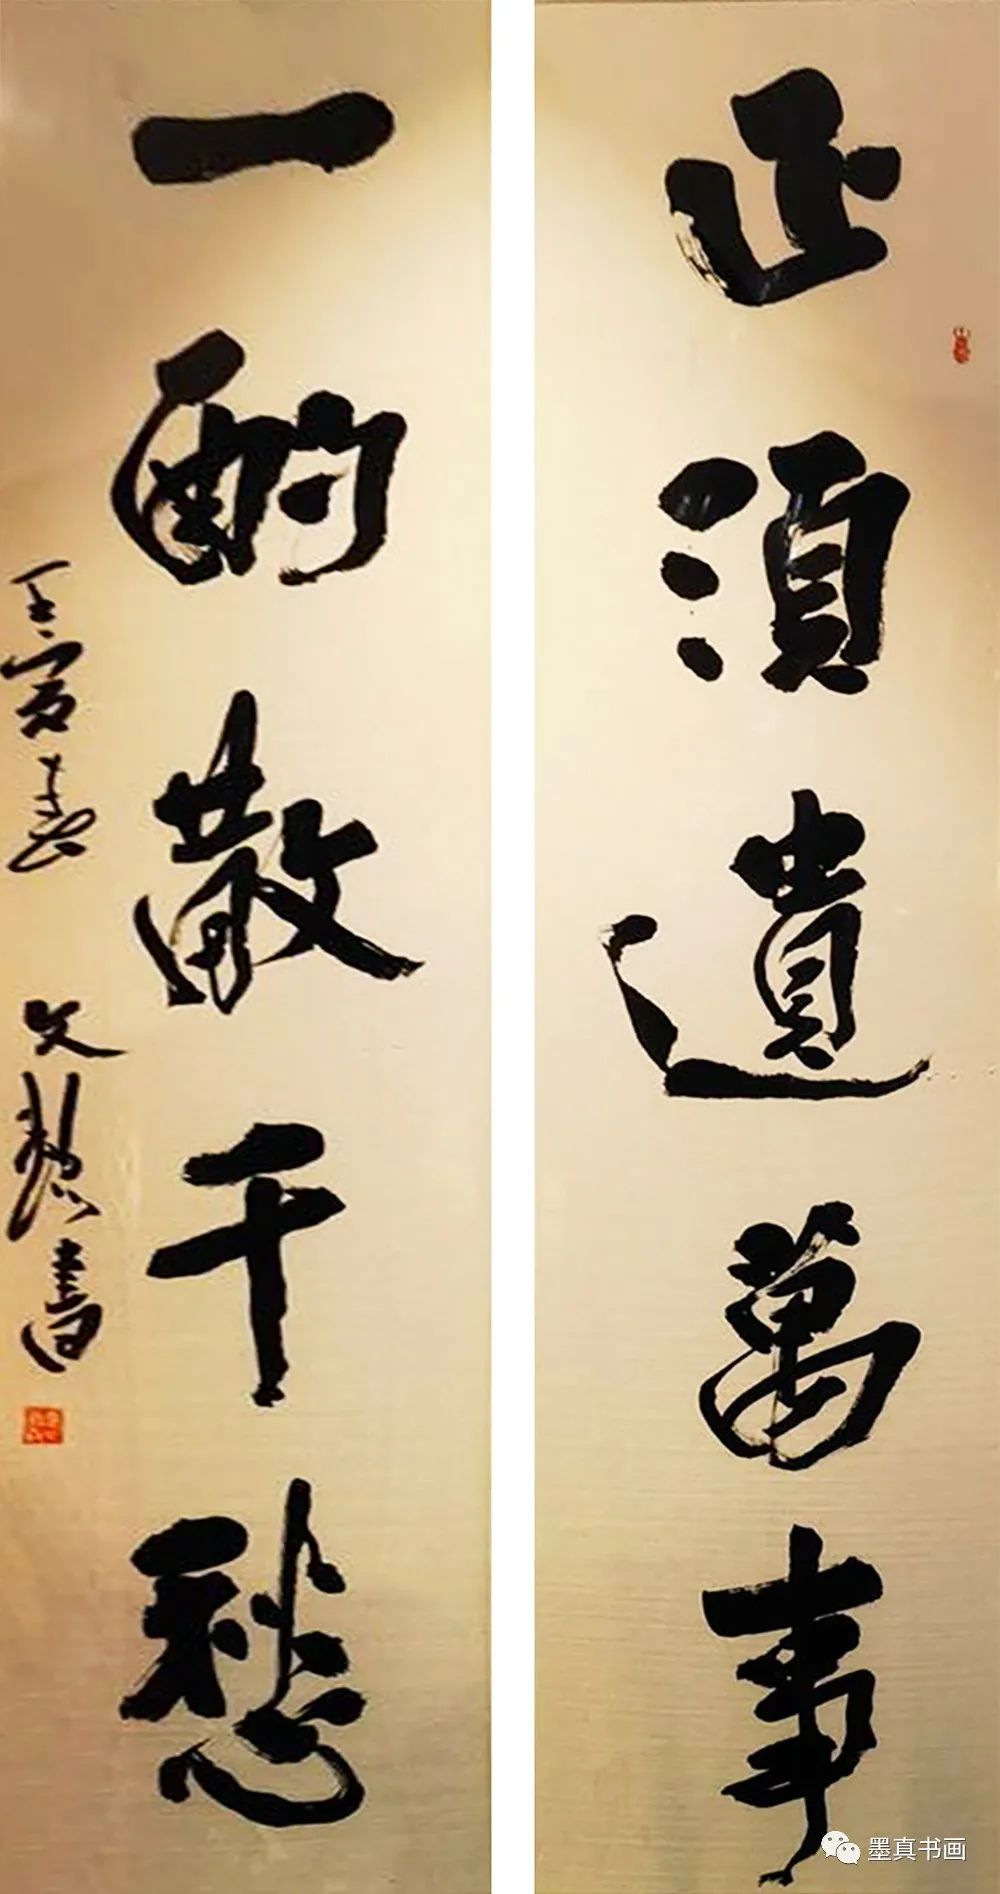 正須遺萬事
一酌散千愁
壬寅春 文 書
墨真书画